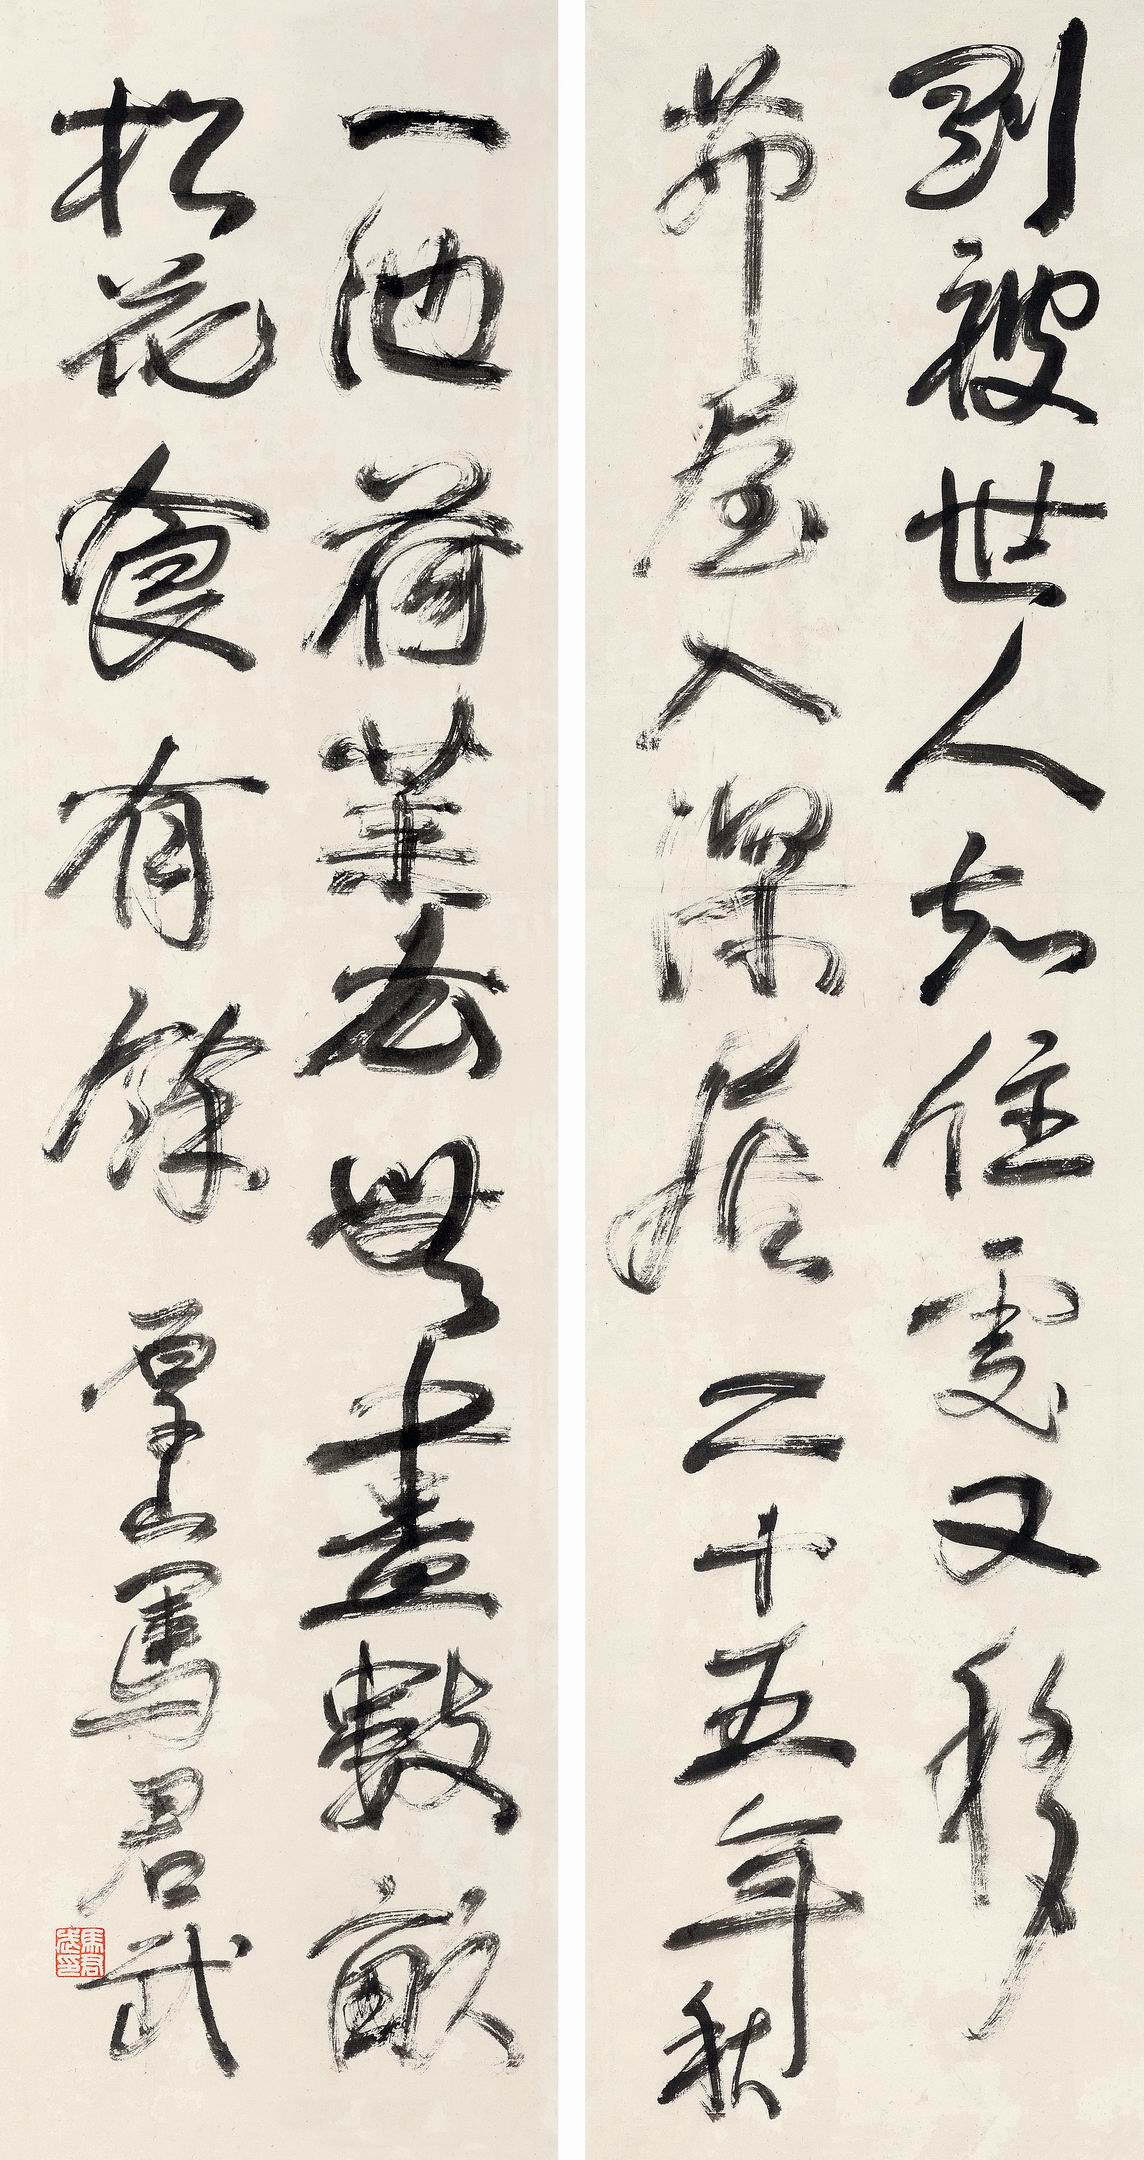 剛被世人知住處又移
茆屋入深居 二十五年秋
一池荷葉衣無盡數畝
松花食有餘 厚山馬君武
馬君武印